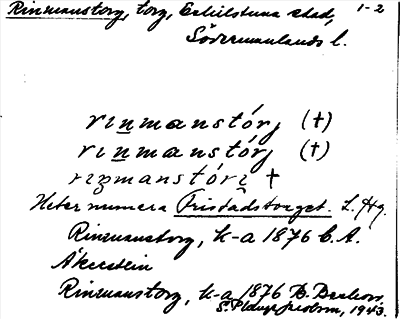 Rinmanstorg, torg, Eskilstuna stad, 1-2
Södermanlands l.
rinmanstórj (†)
rinmanstórj (†)
rinmanstóri̯ †
Heter numera Fristadstorget.
Rinmanstorg, k-a 1876 C. A.
Åkerstein
Rinmanstorg, k-a 1876
1943.